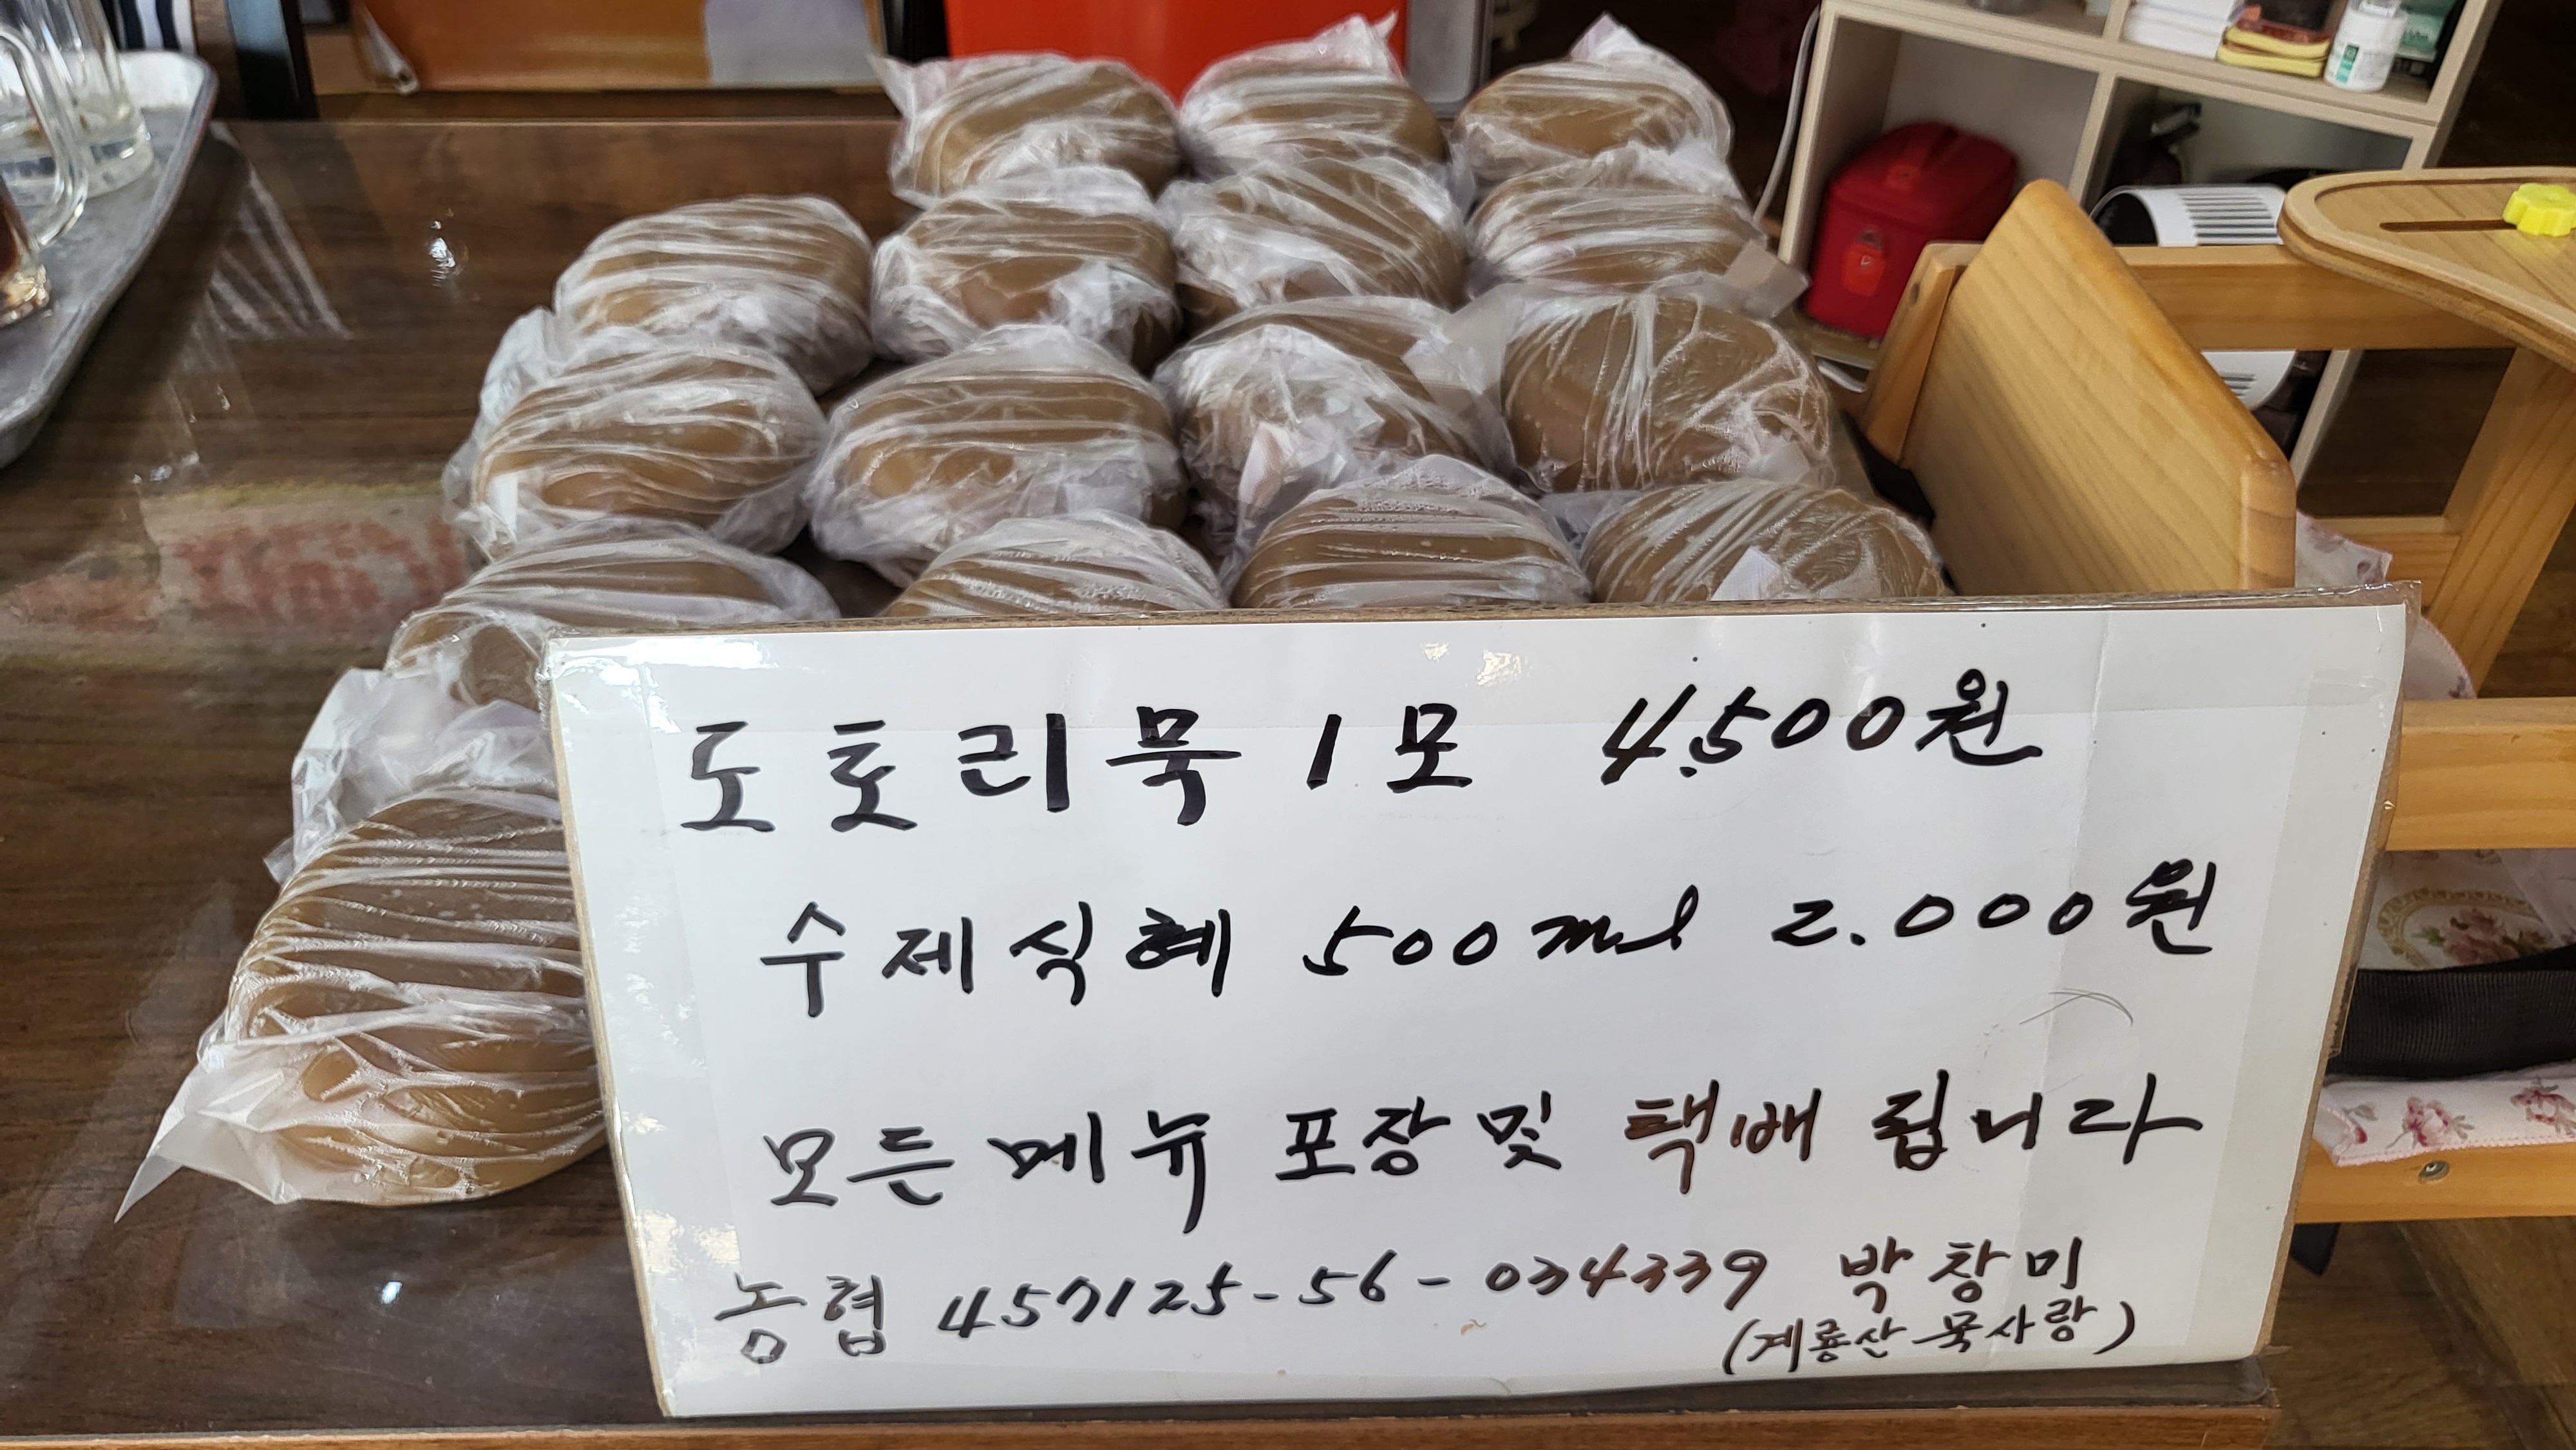 도토리묵 1모 4,500원
수제식혜 500ml 2.000원
모든 메뉴 포장 및 택배 됩니다
농협 457125-56-034339 박창미
(계룡산 묵사랑)